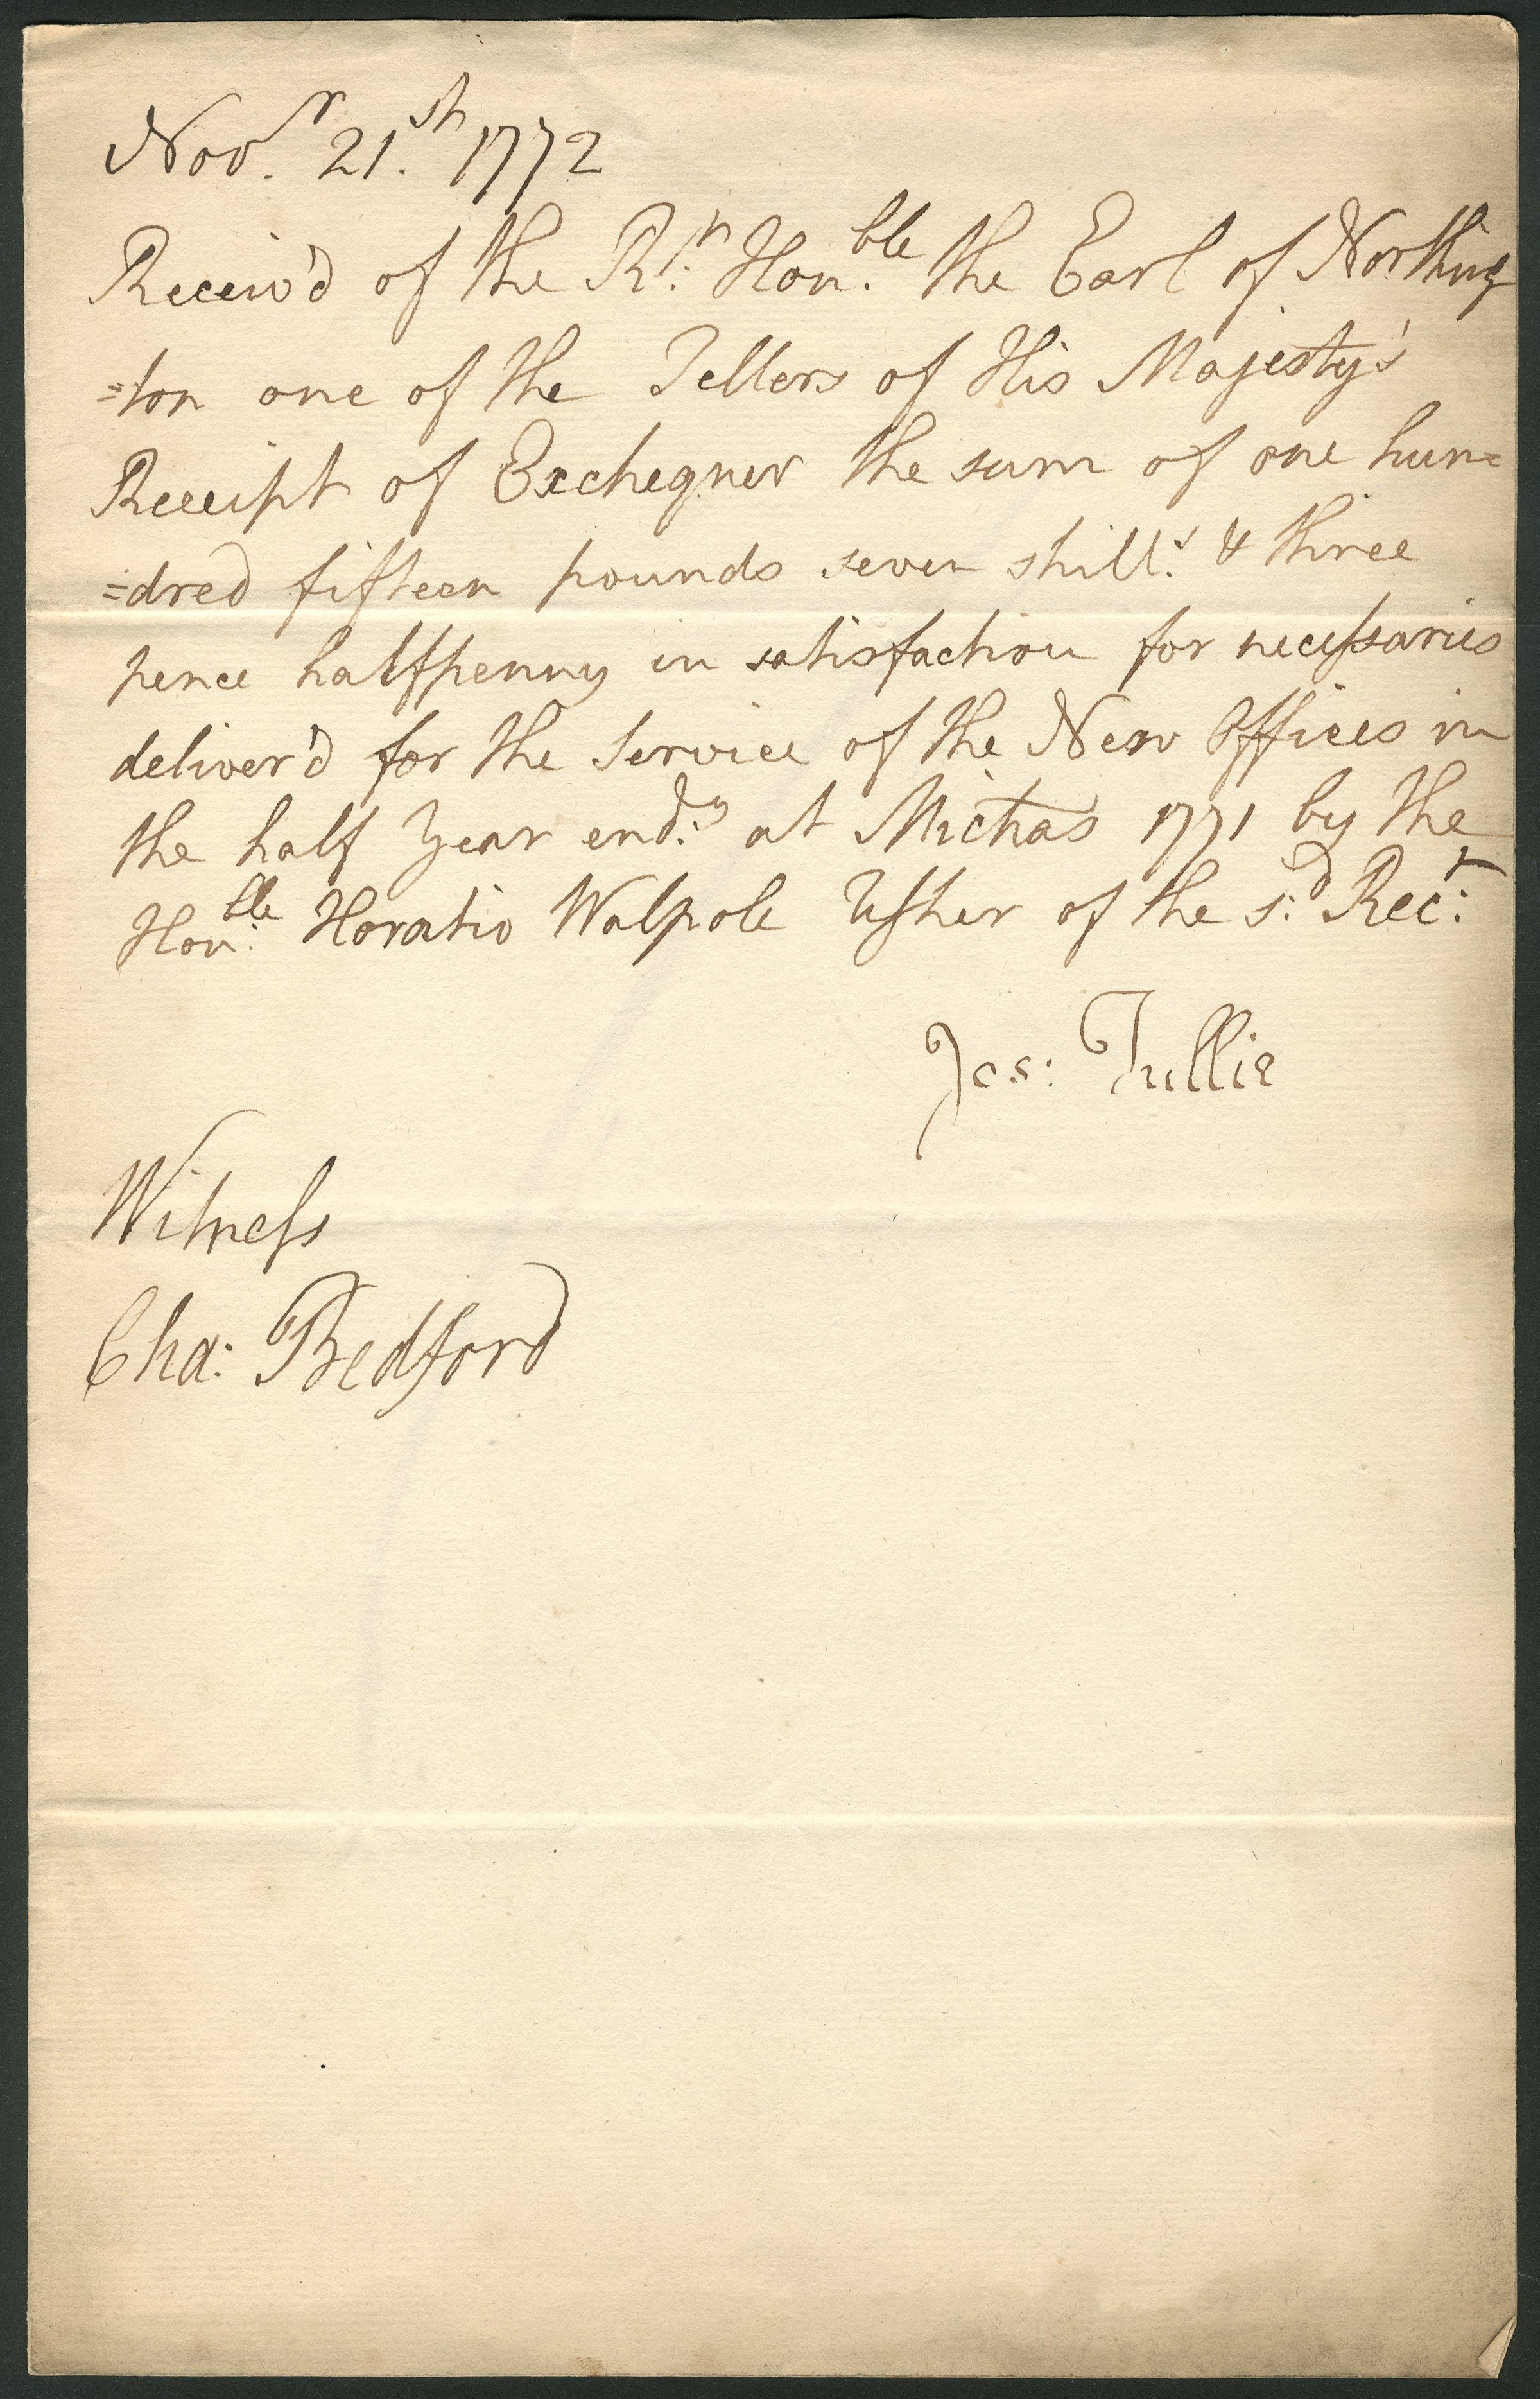 Novr. 21.st 1772
Receiv'd of the Rt. Honble. the Earl of Northing
=ton one of the Tellers of His Majesty's
Receipt of Exchequer the sum of one hun=
=dred fifteen pounds seven shills. & three
pence halfpenny in satisfaction for necessaries
deliver'd for the Service of the New Offices in
the half Year endg. at Michas 1771 by the
Honble: Horatio Walpole Usher of the sd: Rect:
Jos: Tullie
Witness
Cha: Bedford